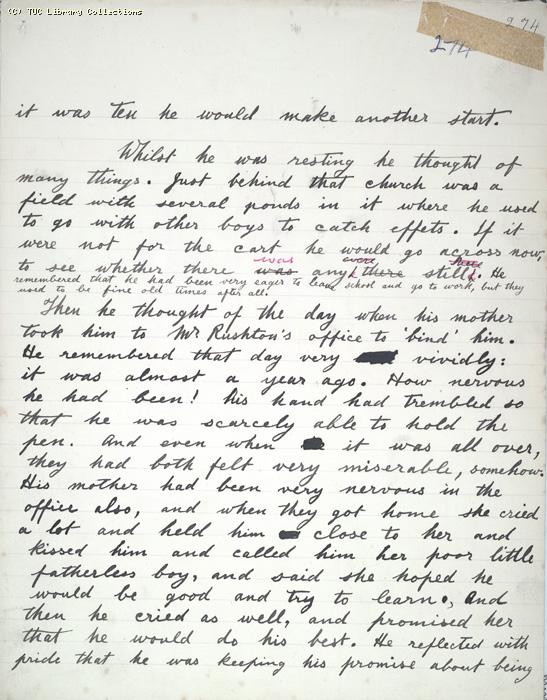 (C) TUC Library Collections
274
274
it was ten he would make another start.
Whilst he was resting he thought of
many things. Just behind that church was a
field with several ponds in it where he used
to go with other boys to catch effets. If it
were not for the cart he would go across now,
to see whether there was any there still. He
remembered that he had been very eager to leave school and go to work, but they
used to be fine old times after all.
Then he thought of the day when his mother
took him to Mr Rushton's office to 'bind' him.
He remembered that day very vividly:
it was almost a year ago. How nervous
he had been! His hand had trembled so
that he was scarcely able to hold the
pen. And even when it was all over,
they had both felt very miserable, somehow.
His mother had been very nervous in the
office also, and when they got home she cried
a lot and held him close to her and
kissed him and called him her poor little
fatherless boy, and said she hoped he
would be good and try to learn. And
then he cried as well, and promised her
that he would do his best. He reflected with
pride that he was keeping his promise about being